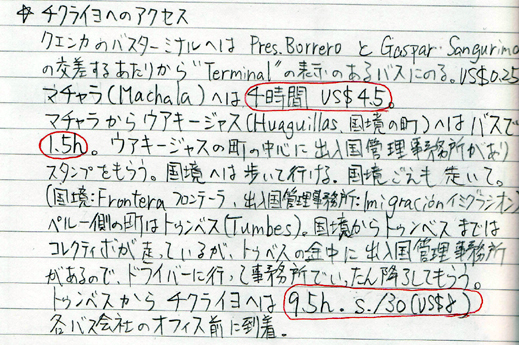 ☆ チクライヨへのアクセス
クエンカのバスターミナルへは Pres. Borrero と Gaspar. Sangurima
の交差するあたりから "Terminal" の表示のあるバスにのる。US$0.25
マチャラ(Machala)へは 4時間 US$4.5。
マチャラからウアキージャス(Huaguillas, 国境の町)へはバスで
1.5h。ウアキージャスの町の中心に出入国管理事務所があり
スタンプをもらう。国境へは歩いて行ける。国境ごえも歩いて。
(国境:Frontera フロンテーラ, 出入国管理事務所:Imigraciónイミグラシオン)
ペルー側の町はトゥンベス(Tumbes)。国境からトゥンベスまでは
コレクティボが走っているが、トゥンベスの途中に出入国管理事務所
があるので、ドライバーに行って事務所でいったん降ろしてもらう。
トゥンベスからチクライヨへは 9.5h. s./30(US$8)
各バス会社のオフィス前に到着。